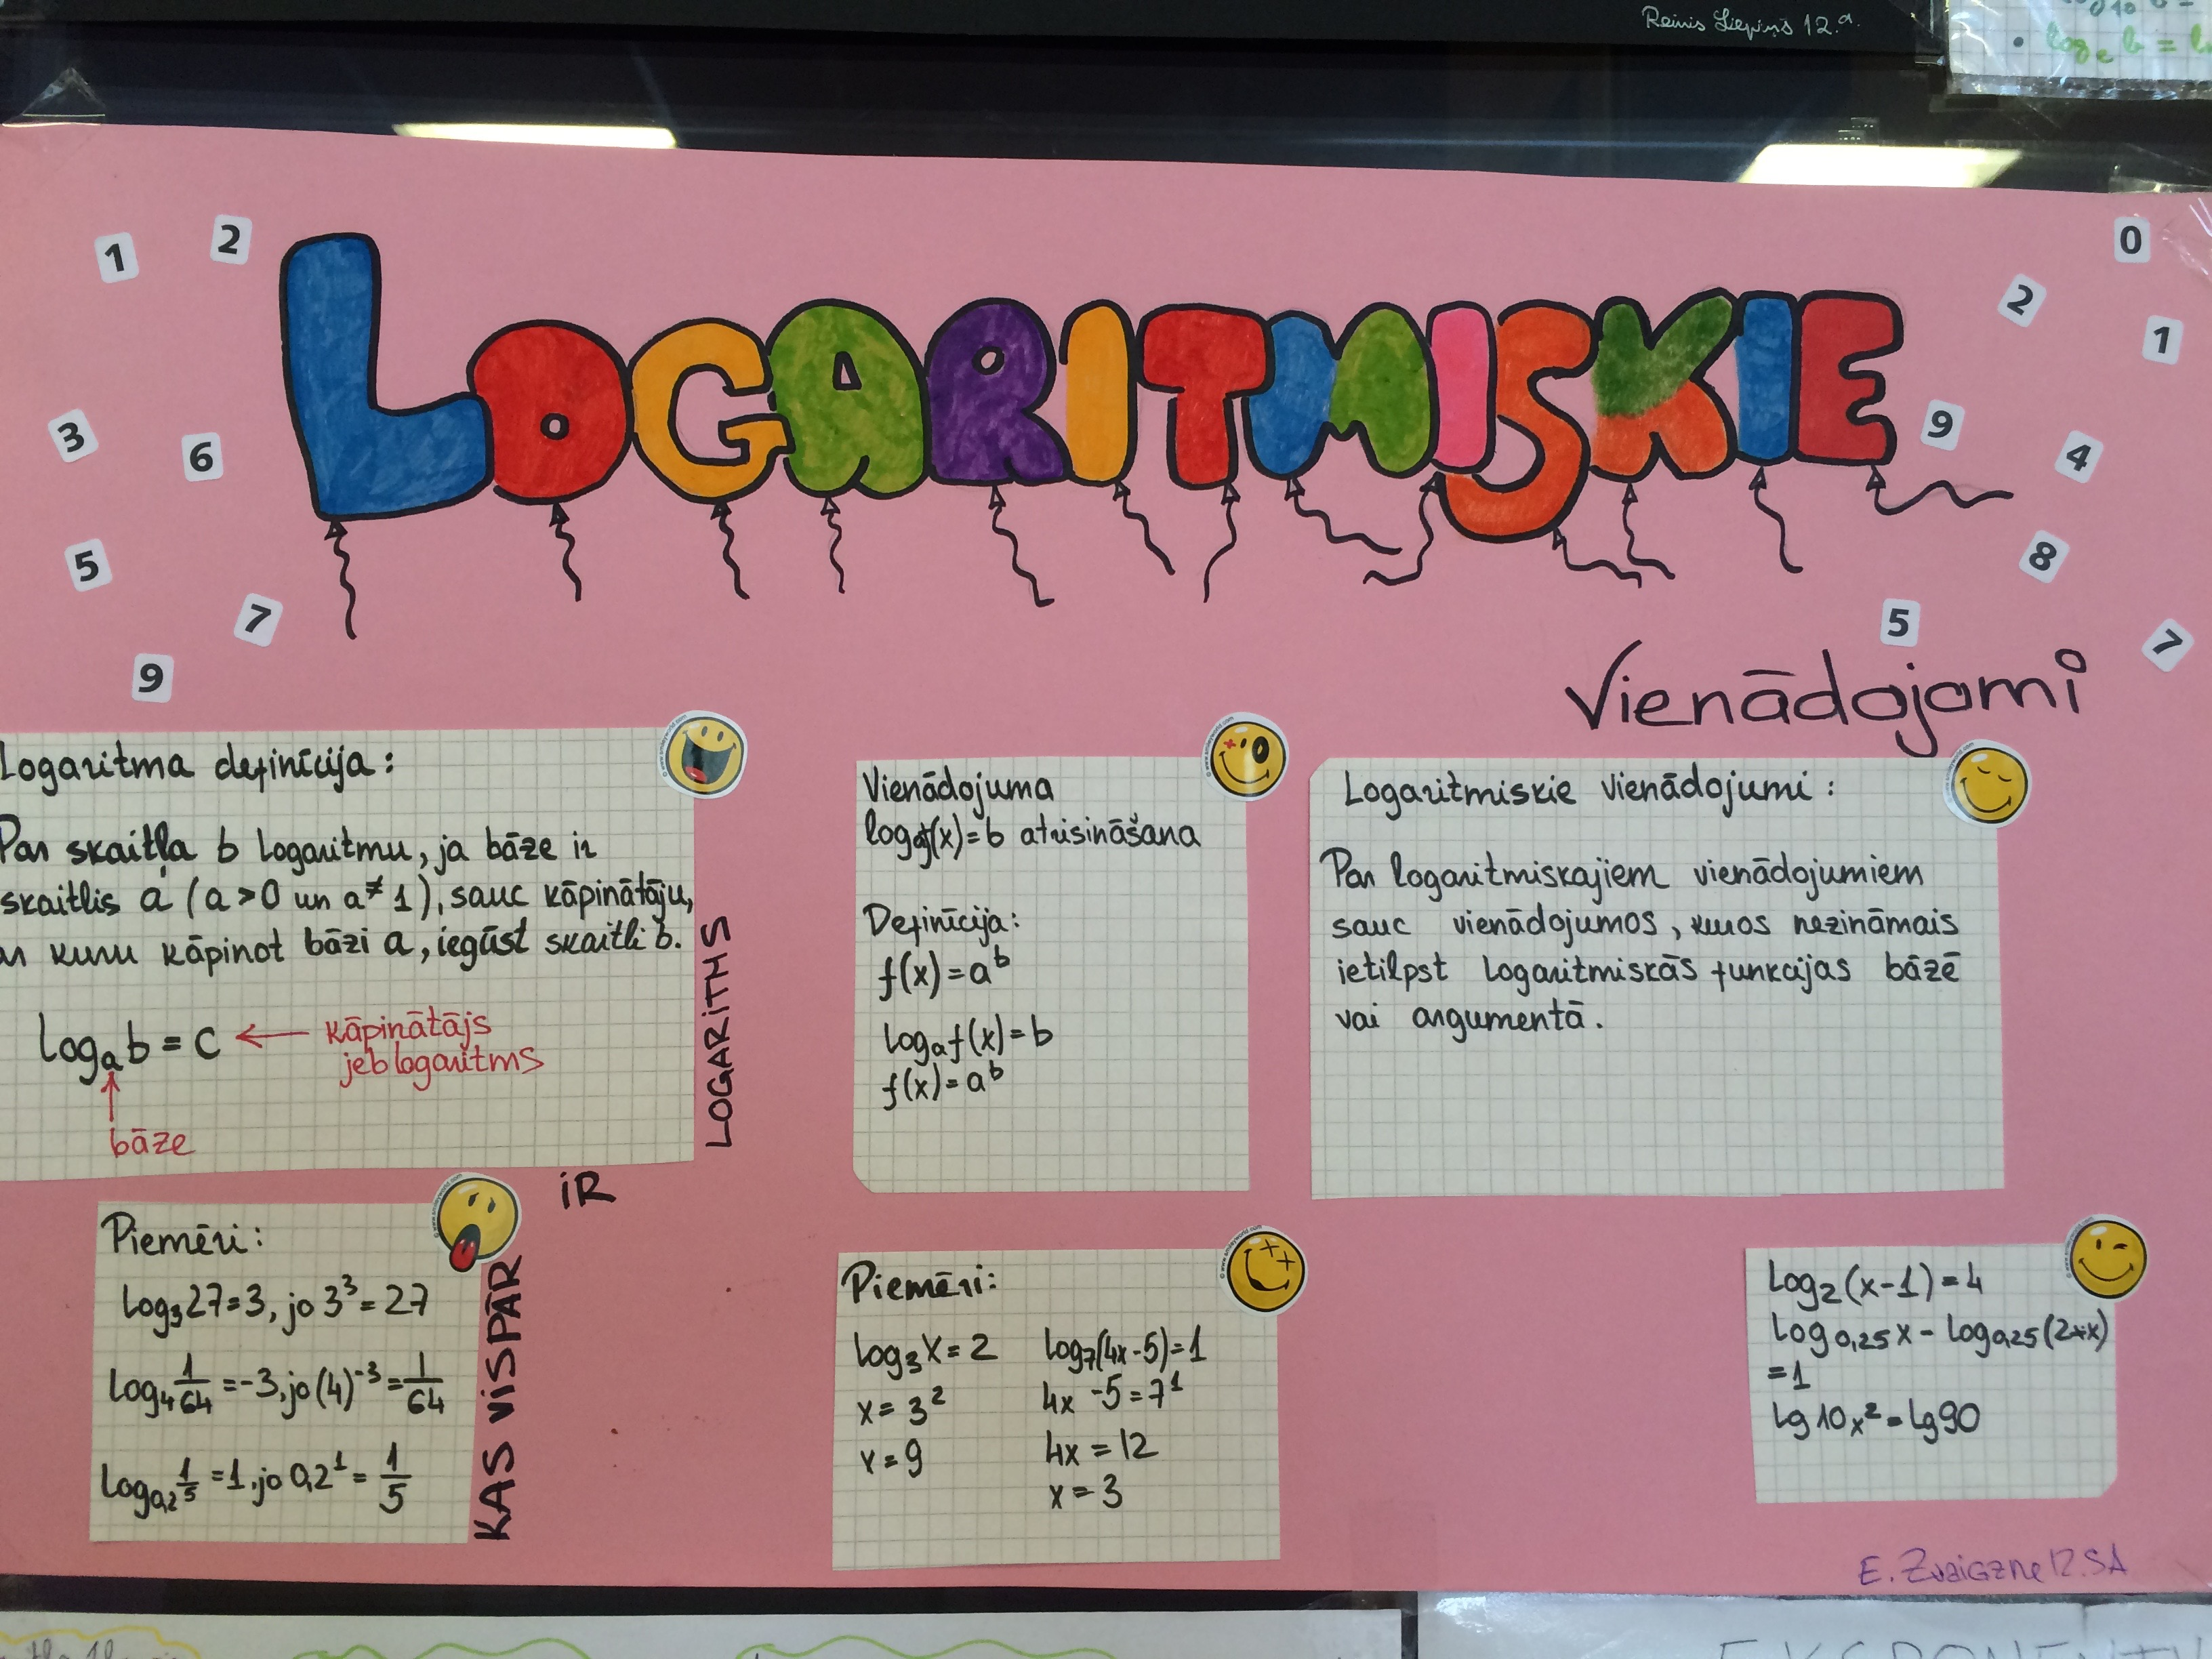 Reinis Liepiņš 12.a.
log₁₀ b =
• logₑ b = l
1
2
0
2
1
3
6
9
4
5
8
7
5
7
9
LOGARITMISKIE
Vienādojomi
Logaritma definīcija:
Par skaitļa b logaritmu, ja bāze ir
skaitlis a (a > 0 un a ≠ 1), sauc kāpinātāju,
ar kuru kāpinot bāzi a, iegūst skaitli b.
logₐb = c ← kāpinātājs
jeb logaritms
↑
bāze
KAS VISPĀR
IR
LOGARITMS
Piemēri:
log₃27=3, jo 3³=27
log₄ 1/64 =-3, jo (4)⁻³= 1/64
log₀,₂ 1/5 =1, jo 0,2¹= 1/5
Vienādojuma
logₐf(x)=b atrisināšana
Definīcija:
f(x)=aᵇ
logₐf(x)=b
f(x)=aᵇ
Piemēri:
log₃x=2
x=3²
x=9
log₇(4x-5)=1
4x -5=7¹
4x=12
x=3
Logaritmiskie vienādojumi:
Par logaritmiskajiem vienādojumiem
sauc vienādojumos, kuros nezināmais
ietilpst logaritmiskās funkcijas bāzē
vai argumentā.
log₂(x-1)=4
log₀,₂₅x - log₀,₂₅(2+x)
=1
lg10x²=lg90
E. Zvaigzne 12.SA